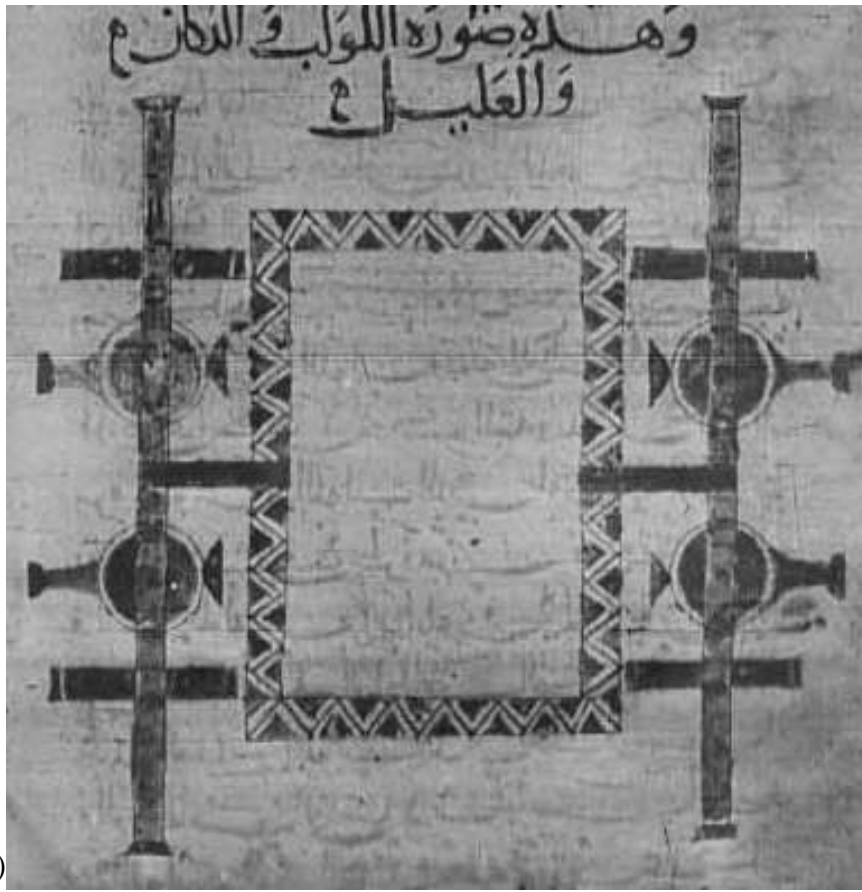 وَهَذِهِ صُورَة اللَوْلَب وَ الدكان
وَالعَلِيل
)